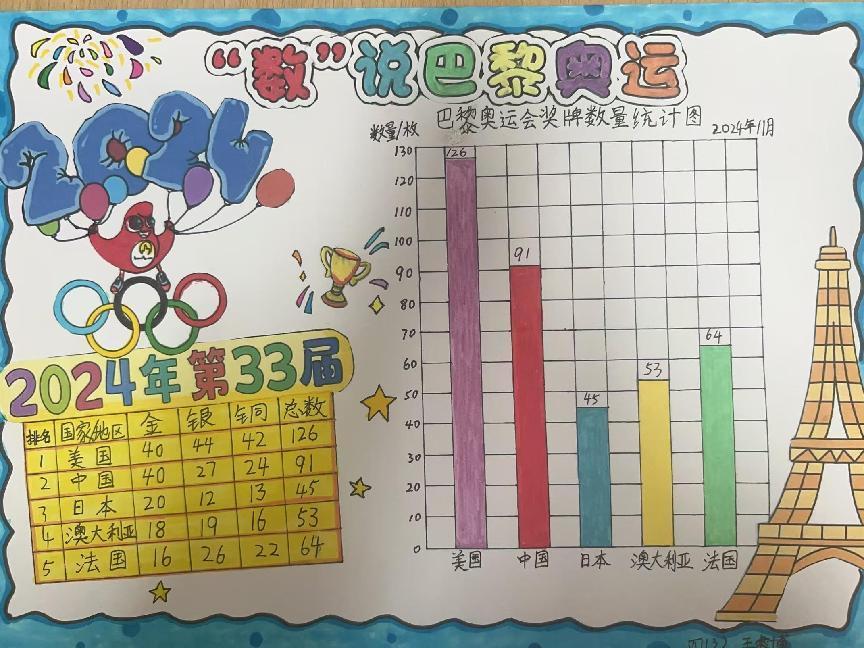 “数”说巴黎奥运
巴黎奥运会奖牌数量统计图
2024年11月
数量/枚
2024
130
120
110
100
90
80
70
60
50
40
30
20
10
0
126
91
45
53
64
美国 中国 日本 澳大利亚 法国
2024年第33届
排名 国家/地区 金 银 铜 总数
1 美国 40 44 42 126
2 中国 40 27 24 91
3 日本 20 12 13 45
4 澳大利亚 18 19 16 53
5 法国 16 26 22 64